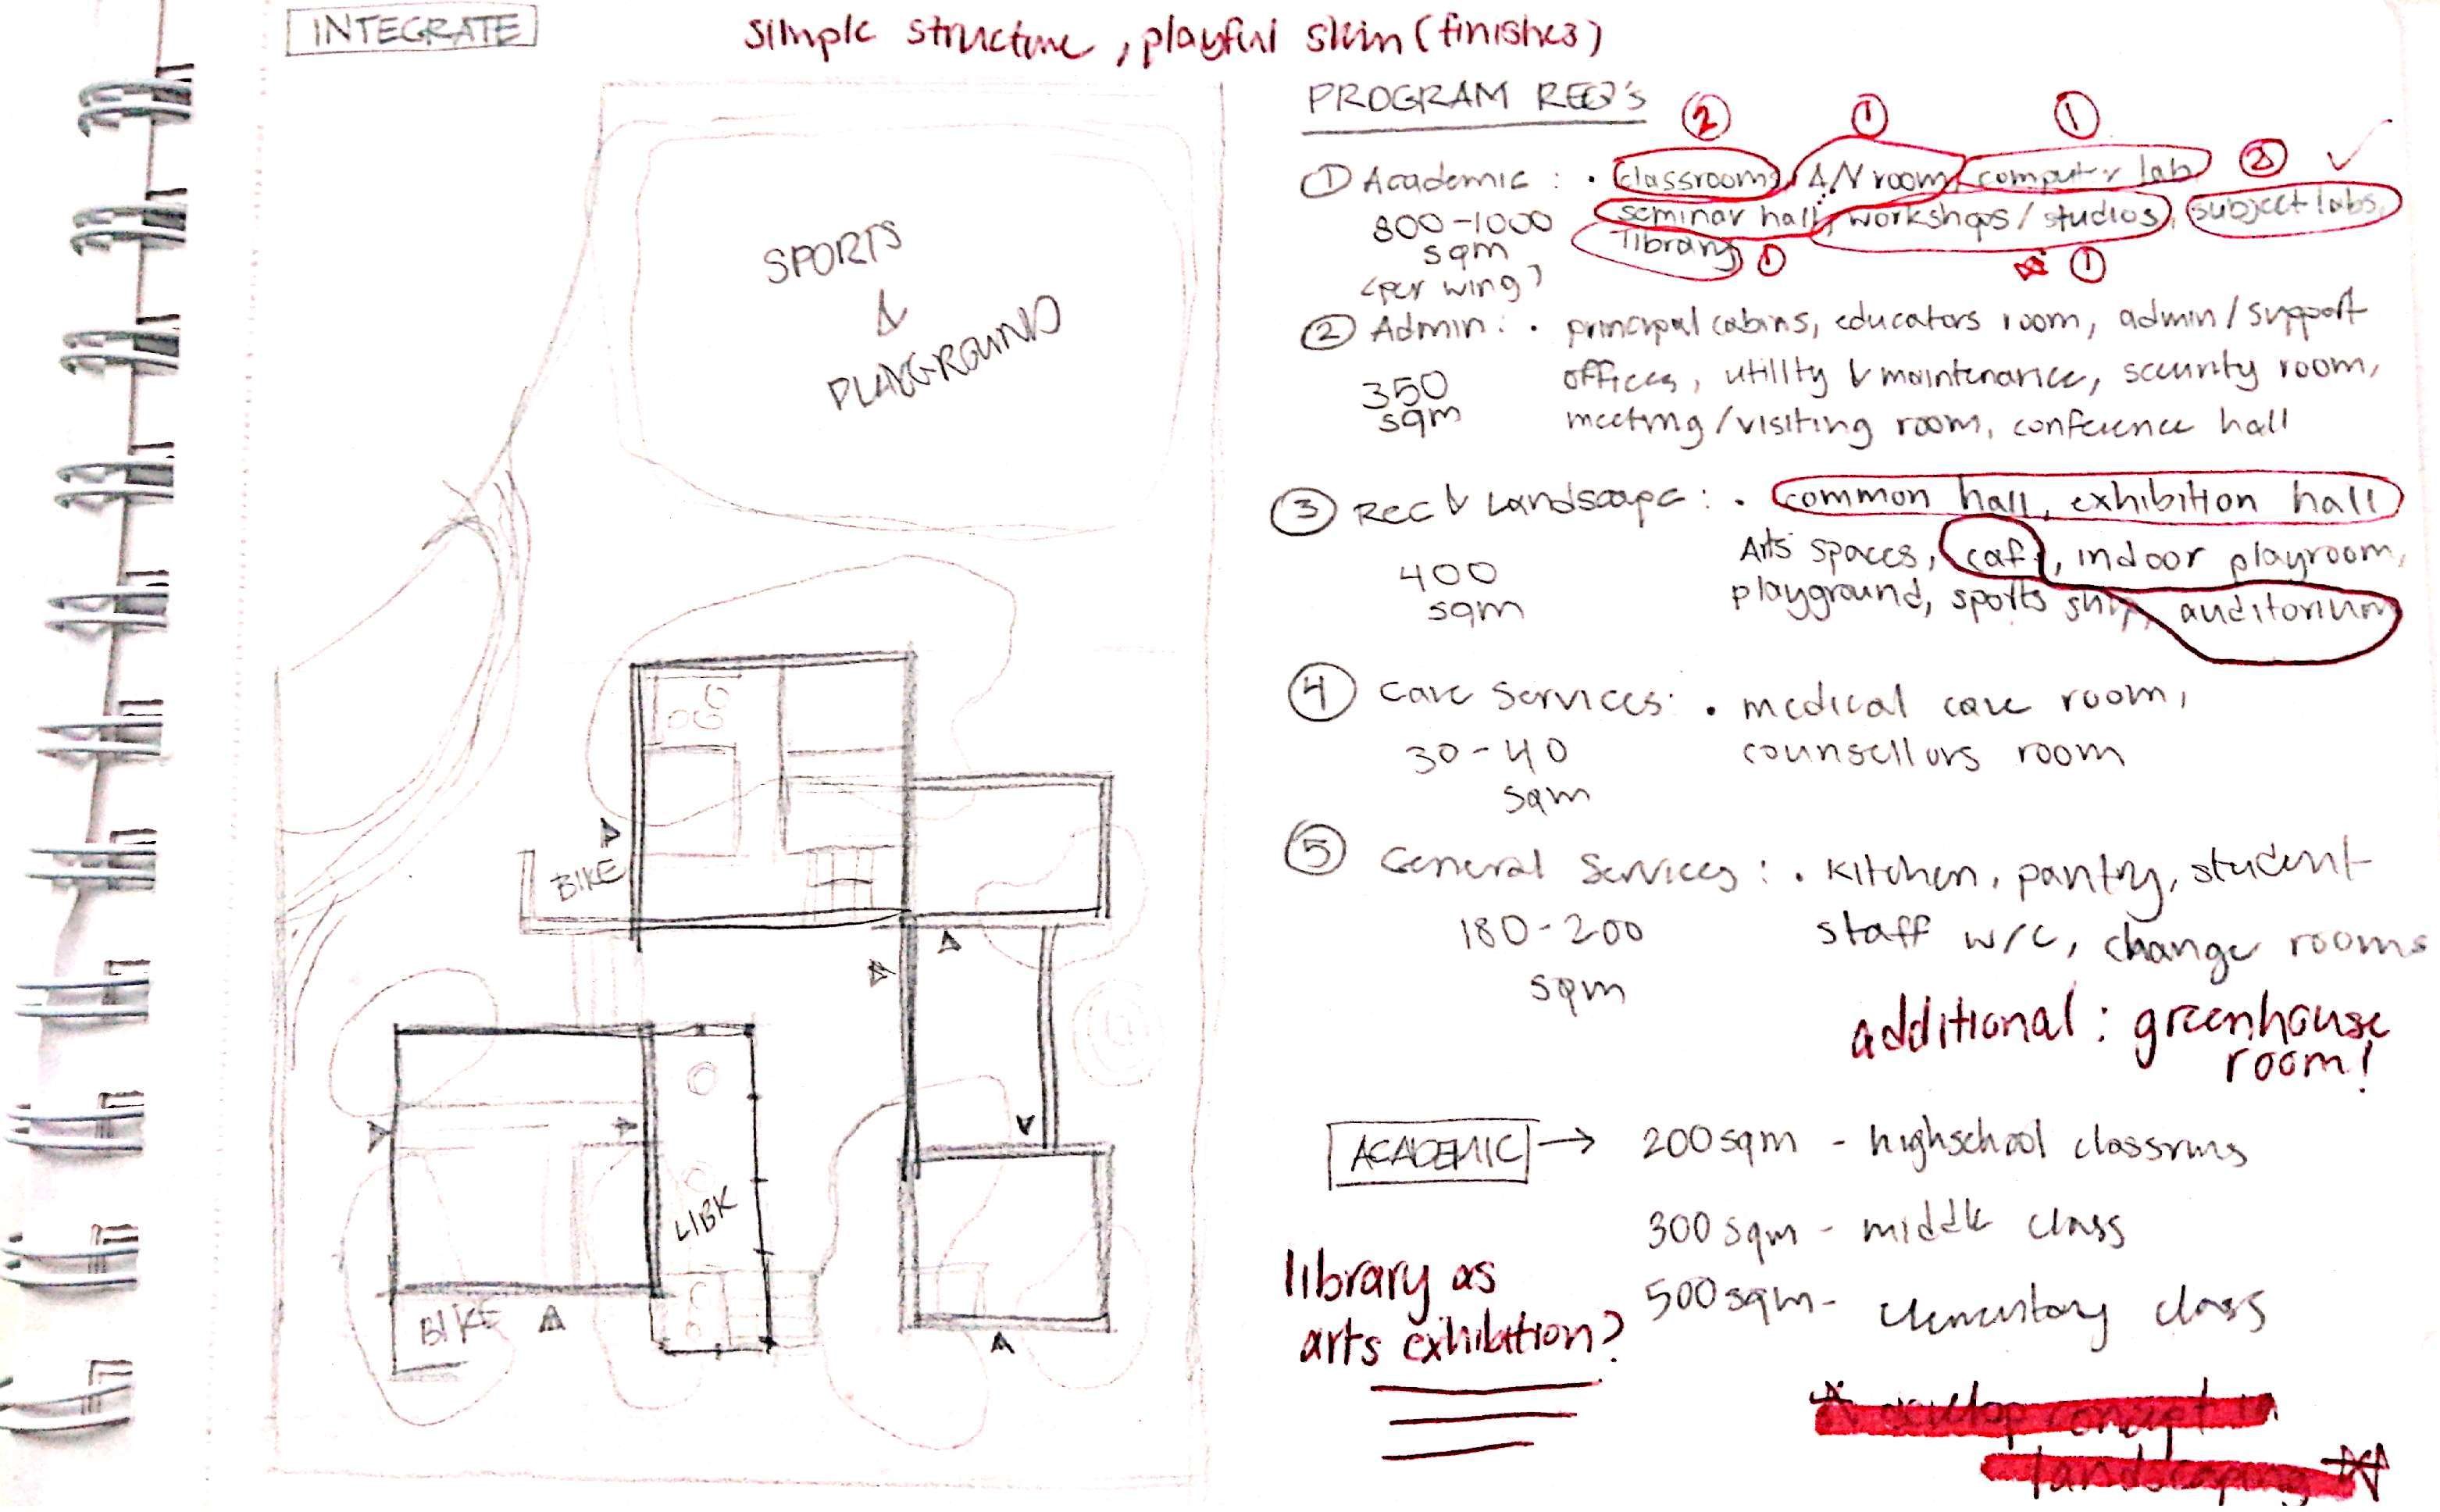 INTEGRATE
simple structure, playful skin (finishes)
SPORTS
&
PLAYGROUND
BIKE
LIBR
BIKE
PROGRAM REQ's
2 1 1
① Academic : • classrooms, A/V room, computer lab
2 ✓
800-1000 seminar hall, workshops/studios, subject labs,
sqm library 1 1
(per wing?)
② Admin : • principal cabins, educators room, admin/support
350 offices, utility & maintenance, security room,
sqm meeting/visiting room, conference hall
③ Rec & Landscape : • common hall, exhibition hall
400 Arts spaces, caf, indoor playroom,
sqm playground, sports auditorium
④ Care Services : • medical care room,
30-40 counsellors room
sqm
⑤ General Services : • kitchen, pantry, student
180-200 staff w/c, change rooms
sqm
additional : greenhouse
room!
ACADEMIC → 200 sqm - highschool classrms
300 sqm - middle class
500 sqm - elementary class
library as
arts exhibition?
develop concept in
landscaping